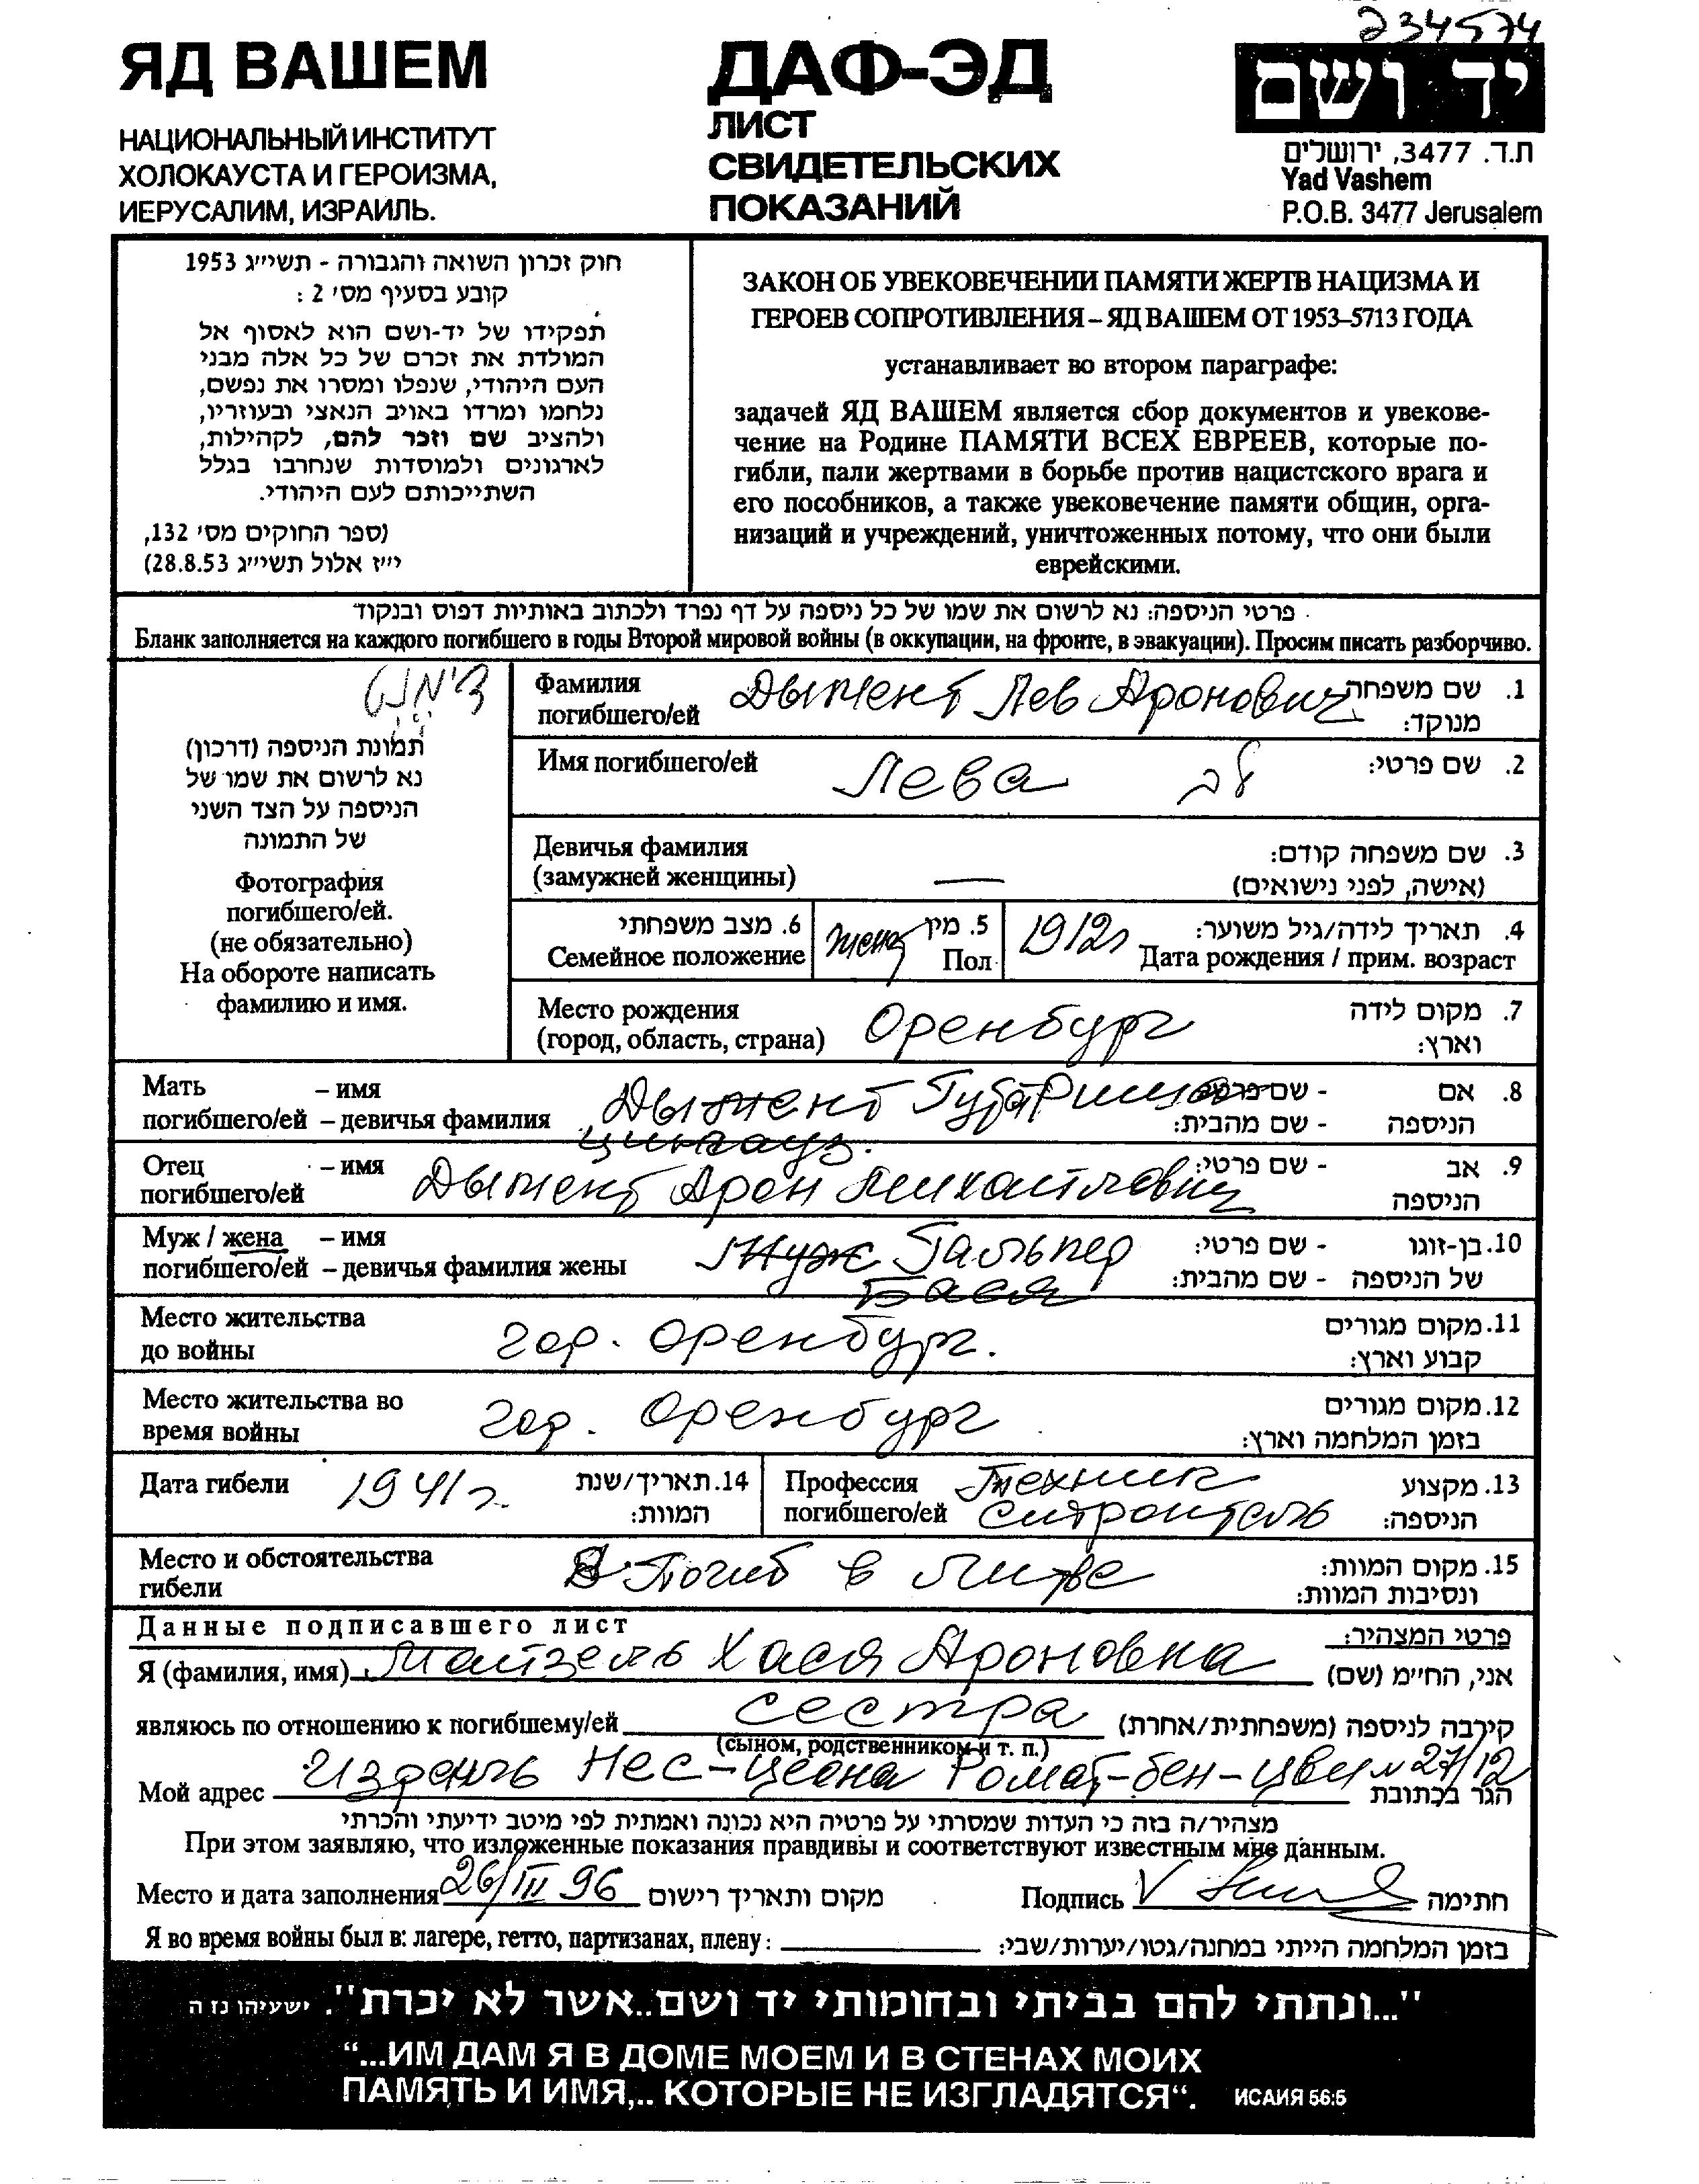 234574
ЯД ВАШЕМ
НАЦИОНАЛЬНЫЙ ИНСТИТУТ
ХОЛОКАУСТА И ГЕРОИЗМА,
ИЕРУСАЛИМ, ИЗРАИЛЬ.
ДАФ-ЭД
ЛИСТ
СВИДЕТЕЛЬСКИХ
ПОКАЗАНИЙ
יד ושם
ת.ד. 3477, ירושלים
Yad Vashem
P.O.B. 3477 Jerusalem
חוק זכרון השואה והגבורה - תשי״ג 1953
קובע בסעיף מס׳ 2 :
תפקידו של יד-ושם הוא לאסוף אל
המולדת את זכרם של כל אלה מבני
העם היהודי, שנפלו ומסרו את נפשם,
נלחמו ומרדו באויב הנאצי ובעוזריו,
ולהציב שם וזכר להם, לקהילות,
לארגונים ולמוסדות שנחרבו בגלל
השתייכותם לעם היהודי.
(ספר החוקים מס׳ 132,
י״ז אלול תשי״ג 28.8.53)
ЗАКОН ОБ УВЕКОВЕЧЕНИИ ПАМЯТИ ЖЕРТВ НАЦИЗМА И
ГЕРОЕВ СОПРОТИВЛЕНИЯ – ЯД ВАШЕМ ОТ 1953–5713 ГОДА
устанавливает во втором параграфе:
задачей ЯД ВАШЕМ является сбор документов и увекове-
чение на Родине ПАМЯТИ ВСЕХ ЕВРЕЕВ, которые по-
гибли, пали жертвами в борьбе против нацистского врага и
его пособников, а также увековечение памяти общин, орга-
низаций и учреждений, уничтоженных потому, что они были
еврейскими.
פרטי הניספה: נא לרשום את שמו של כל ניספה על דף נפרד ולכתוב באותיות דפוס ובנקוד
Бланк заполняется на каждого погибшего в годы Второй мировой войны (в оккупации, на фронте, в эвакуации). Просим писать разборчиво.
דימנט
תמונת הניספה (דרכון)
נא לרשום את שמו של
הניספה על הצד השני
של התמונה
Фотография
погибшего/ей.
(не обязательно)
На обороте написать
фамилию и имя.
Фамилия Дымент Лев Аронович 1. שם משפחה
погибшего/ей מנוקד:
Имя погибшего/ей Лева לב 2. שם פרטי:
Девичья фамилия 3. שם משפחה קודם:
(замужней женщины) — (אישה, לפני נישואים)
6. מצב משפחתי 5. מין 1912г 4. תאריך לידה/גיל משוער:
Семейное положение Пол Дата рождения / прим. возраст
Место рождения Оренбург 7. מקום לידה
(город, область, страна) וארץ:
Мать – имя Дымент 8. אם - שם פרטי:
погибшего/ей – девичья фамилия הניספה - שם מהבית:
Отец – имя Дымент Арон Михайлович 9. אב - שם פרטי:
погибшего/ей הניספה
Муж / жена – имя Муж Гальпер 10. בן-זוגו - שם פרטי:
погибшего/ей – девичья фамилия жены Бася של הניספה - שם מהבית:
Место жительства гор. Оренбург. 11. מקום מגורים
до войны קבוע וארץ:
Место жительства во гор. Оренбург 12. מקום מגורים
время войны בזמן המלחמה וארץ:
Дата гибели 1941г. 14. תאריך/שנת המוות:
Профессия Техник 13. מקצוע
погибшего/ей строитель הניספה:
Место и обстоятельства Погиб в Литве 15. מקום המוות:
гибели ונסיבות המוות:
Данные подписавшего лист פרטי המצהיר:
Я (фамилия, имя) Майзель Хася Ароновна אני, הח״מ (שם)
являюсь по отношению к погибшему/ей сестра קירבה לניספה (משפחתית/אחרת)
(сыном, родственником и т. п.)
Мой адрес Израиль Нес-Циона Ромат-бен-Цви 27/12 הגר בכתובת
מצהיר/ה בזה כי העדות שמסרתי על פרטיה היא נכונה ואמתית לפי מיטב ידיעתי והכרתי
При этом заявляю, что изложенные показания правдивы и соответствуют известным мне данным.
Место и дата заполнения 26/III 96 מקום ותאריך רישום Подпись V חתימה
Я во время войны был в: лагере, гетто, партизанах, плену: בזמן המלחמה הייתי במחנה/גטו/יערות/שבי:
"...ונתתי להם בביתי ובחומותי יד ושם..אשר לא יכרת". ישעיהו נז ה
“...ИМ ДАМ Я В ДОМЕ МОЕМ И В СТЕНАХ МОИХ
ПАМЯТЬ И ИМЯ,.. КОТОРЫЕ НЕ ИЗГЛАДЯТСЯ“. ИСАИЯ 56:5